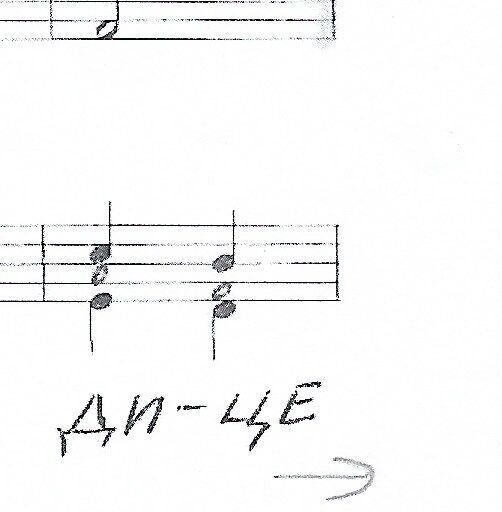 ДИ-ЦЕ